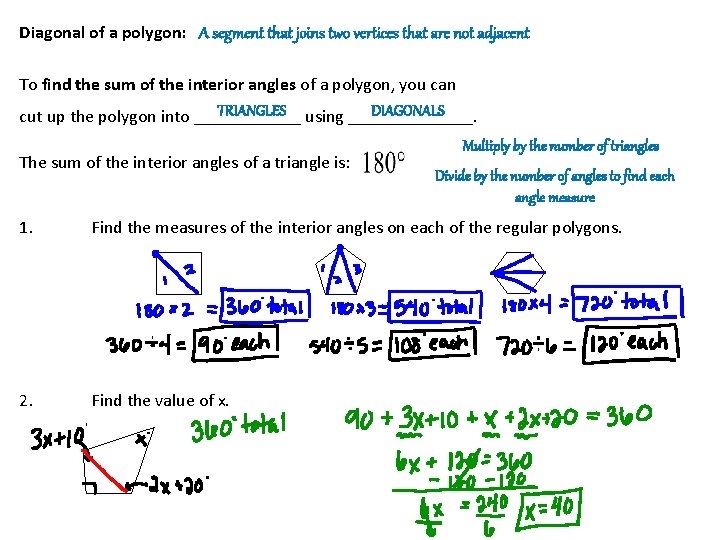 Diagonal of a polygon: A segment that joins two vertices that are not adjacent
To find the sum of the interior angles of a polygon, you can
cut up the polygon into TRIANGLES using DIAGONALS.
The sum of the interior angles of a triangle is: 180°
Multiply by the number of triangles
Divide by the number of angles to find each
angle measure
1. Find the measures of the interior angles on each of the regular polygons.
1 2
1 2 3
180 × 2 = 360° total
180 × 3 = 540° total
180 × 4 = 720° total
360 ÷ 4 = 90° each
540 ÷ 5 = 108° each
720 ÷ 6 = 120° each
2. Find the value of x.
360° total
3x+10°
x°
2x+20°
90 + 3x+10 + x + 2x+20 = 360
6x + 120 = 360
- 120 - 120
6x = 240
6 6
x = 40